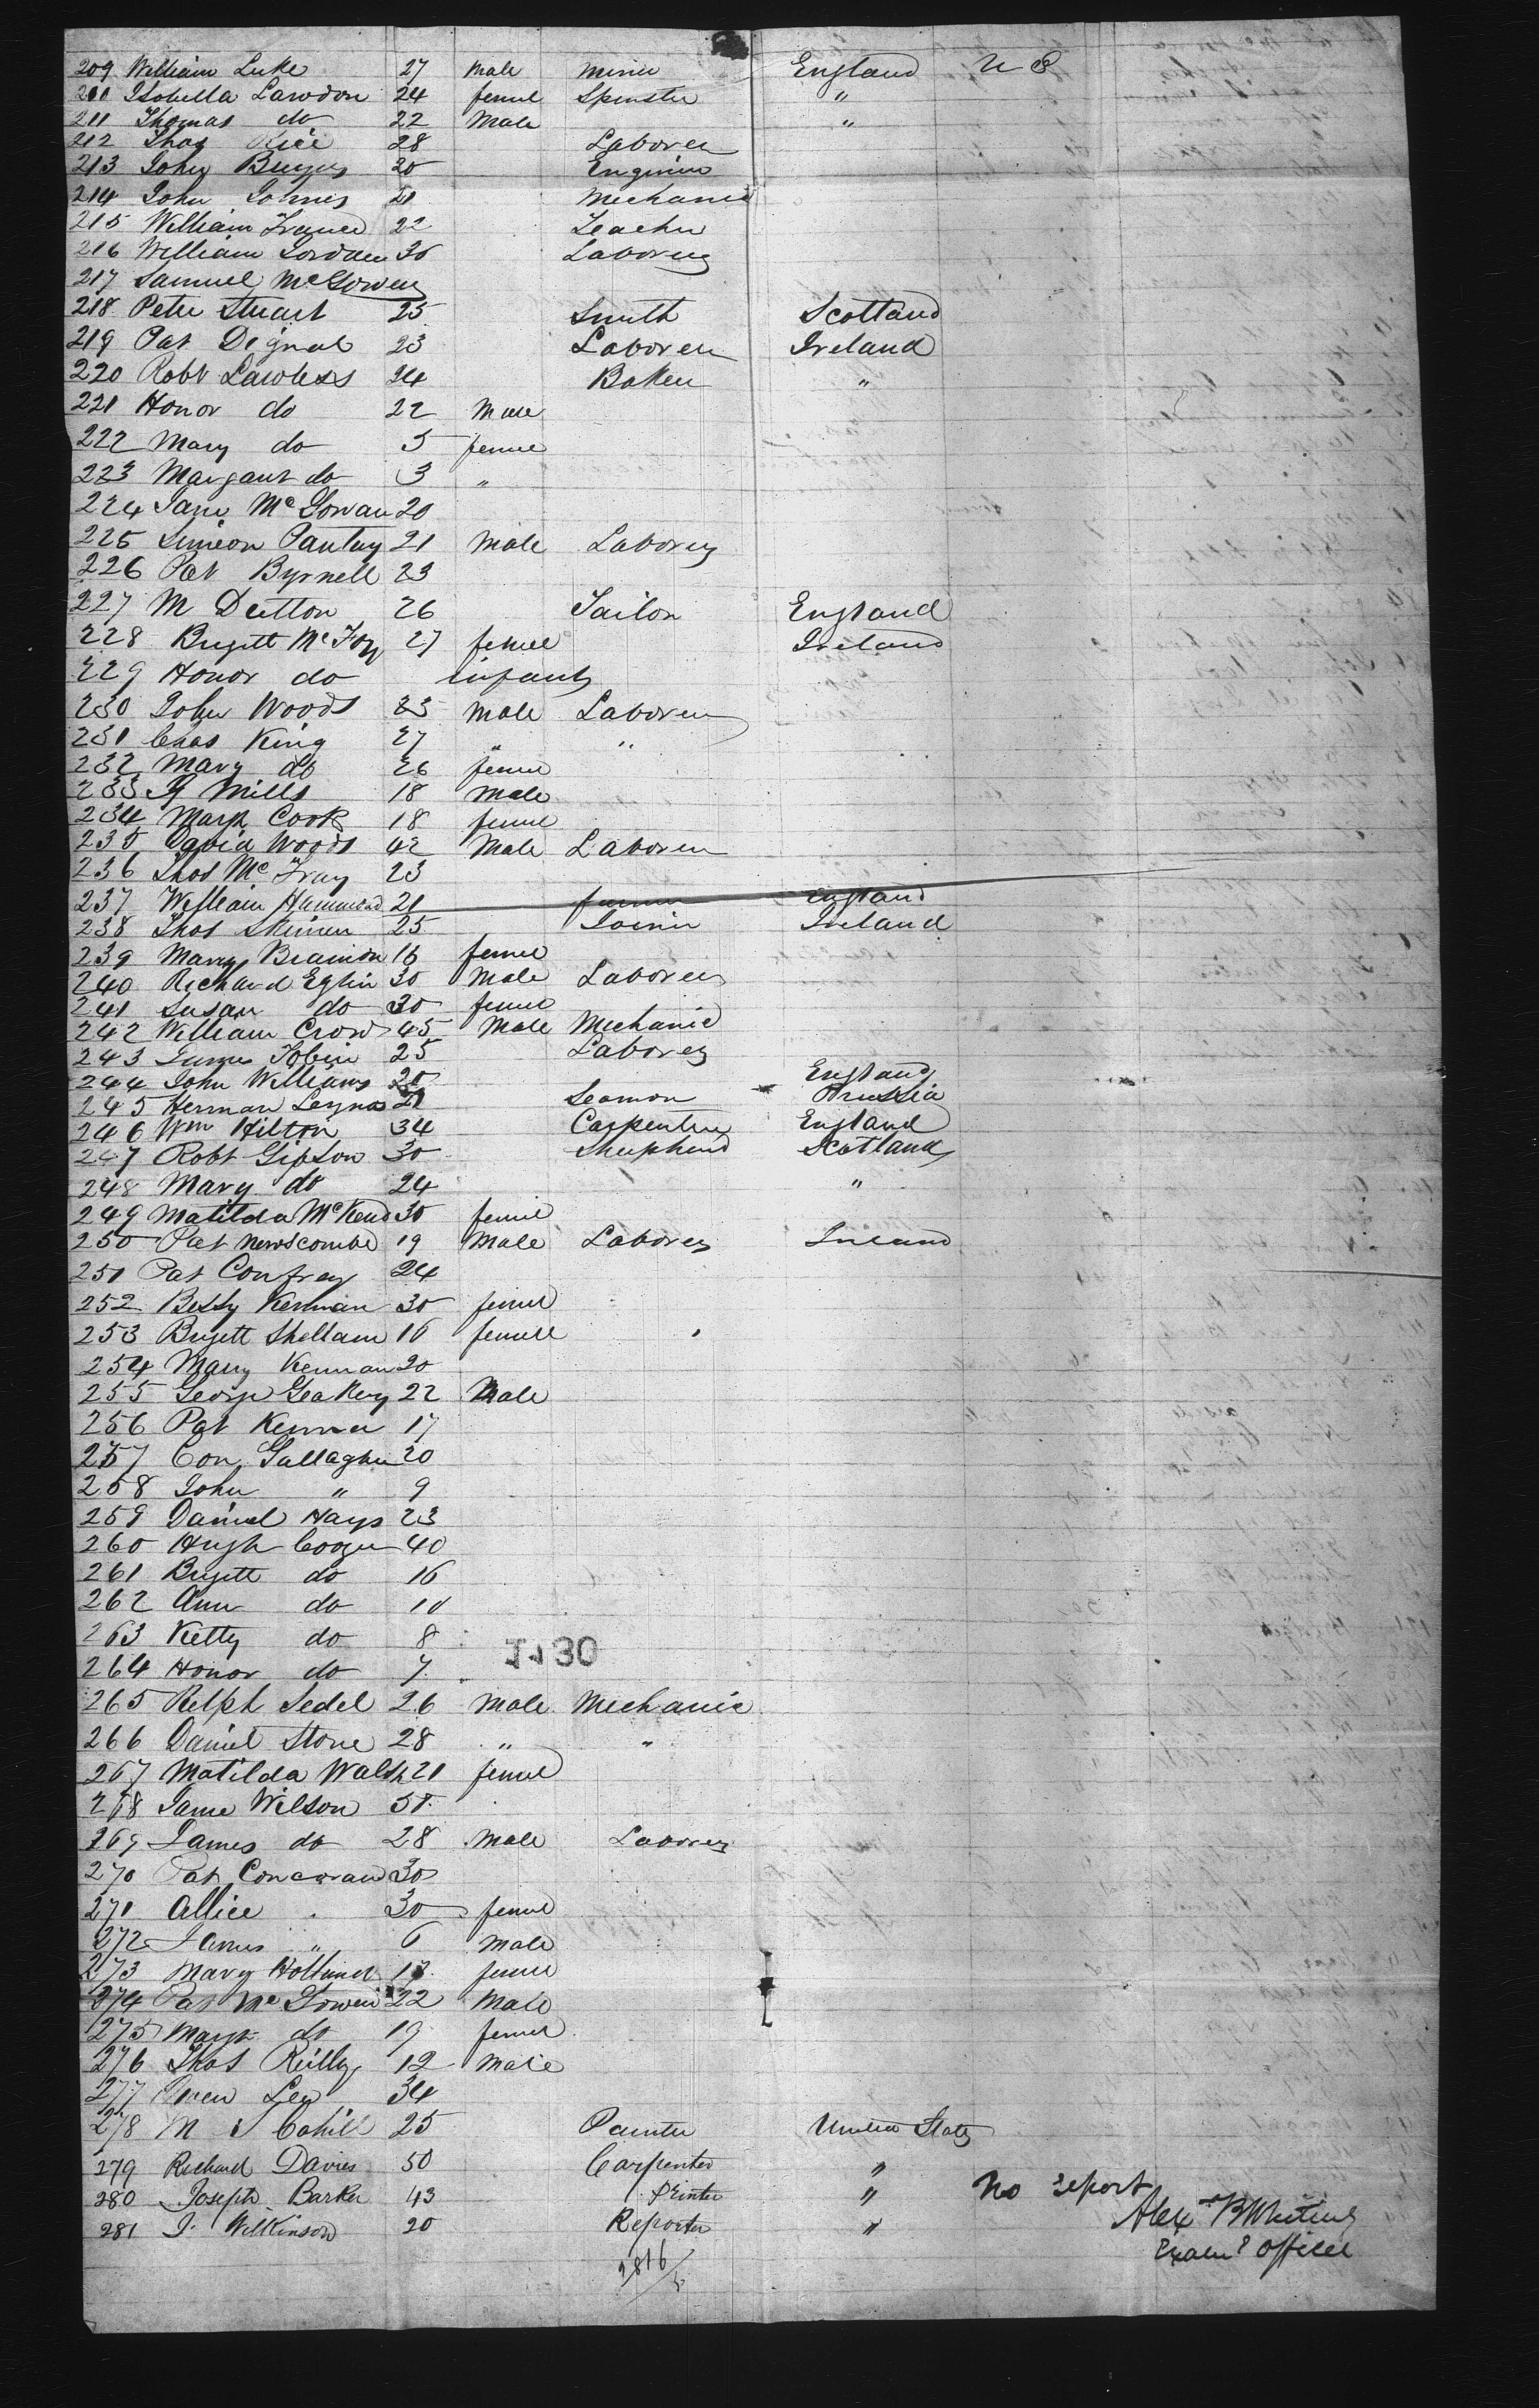 209 William Luke 27 Male Miner England U S
210 Isobella Lawdon 24 femel Spinster "
211 Thomas do 22 Male "
212 Thos Rice 28 Laborer
213 John 20 Enginier
214 John Johnes 21 Mechanic
215 William 22 Teacher
216 William Jordan 30 Laborer
217 Samuel McGowen
218 Peter Stuart 25 Smith Scotland
219 Pat Dignal 23 Laborer Ireland
220 Robt Lawless 24 Baker "
221 Honor do 22 Male
222 Mary do 5 femel
223 Margaret do 3 "
224 Jane McGowan 20
225 Simeon 21 Male Laborer
226 Pat Byrnell 23
227 M Dutton 26 Tailor England
228 Brigett McFoy 27 femel Ireland
229 Honor do infant
230 John Woods 23 Male Laborer
231 Chas King 27 " "
232 Mary do 26 femel
233 Mills 18 Male
234 Cook 18 femel
235 David Woods 42 Male Laborer
236 Thos 23
237 William Hammond 21 farmer England
238 Thos Skinner 25 Joiner Ireland
239 Mary 16 femel
240 Richard Eglin 30 Male Laborer
241 Susan do 30 femel
242 William Crow 45 Male Mechanic
243 James Tobin 25 Laborer
244 John Williams 20 England
245 Herman 21 Seamon Prussia
246 Wm Hilton 34 Carpenter England
247 Robt Gipson 30 Shephend Scotland
248 Mary do 24 "
249 Matilda 30 femel
250 Pat Newscombe 19 Male Laborer Ireland
251 Pat Confrey 24
252 Bessy Kernnan 30 femel
253 Brigett 16 femele
254 Mary Kernnan 20
255 George Geakery 22 Male
256 Pat 17
257 Con Gallagher 20
258 John " 9
259 Daniel Hays 23
260 Hugh 40
261 Brigett do 16
262 Ann do 10
263 Kitty do 8
264 Honor do 7
1130
265 Relph Sedel 26 Male Mechanic
266 Daniel Stone 28 " "
267 Matilda Walsh 21 femel
268 Jame Wilson
269 James do 28 Male Laborer
270 Pat 30
271 Allice 30 femel
272 James " 6 Male
273 Mary femel
274 Pat McGowen 22 Male
275 do 19 femel
276 Thos Reilly 12 Male
277 Owen Leo 34
278 M S Cahill 25 Painter United States
279 Richard Davies 50 Carpenter "
280 Joseph Barker 43 Printer " No report
281 J. Wilkinson 20 Reporter " Alex B Whiting
officer